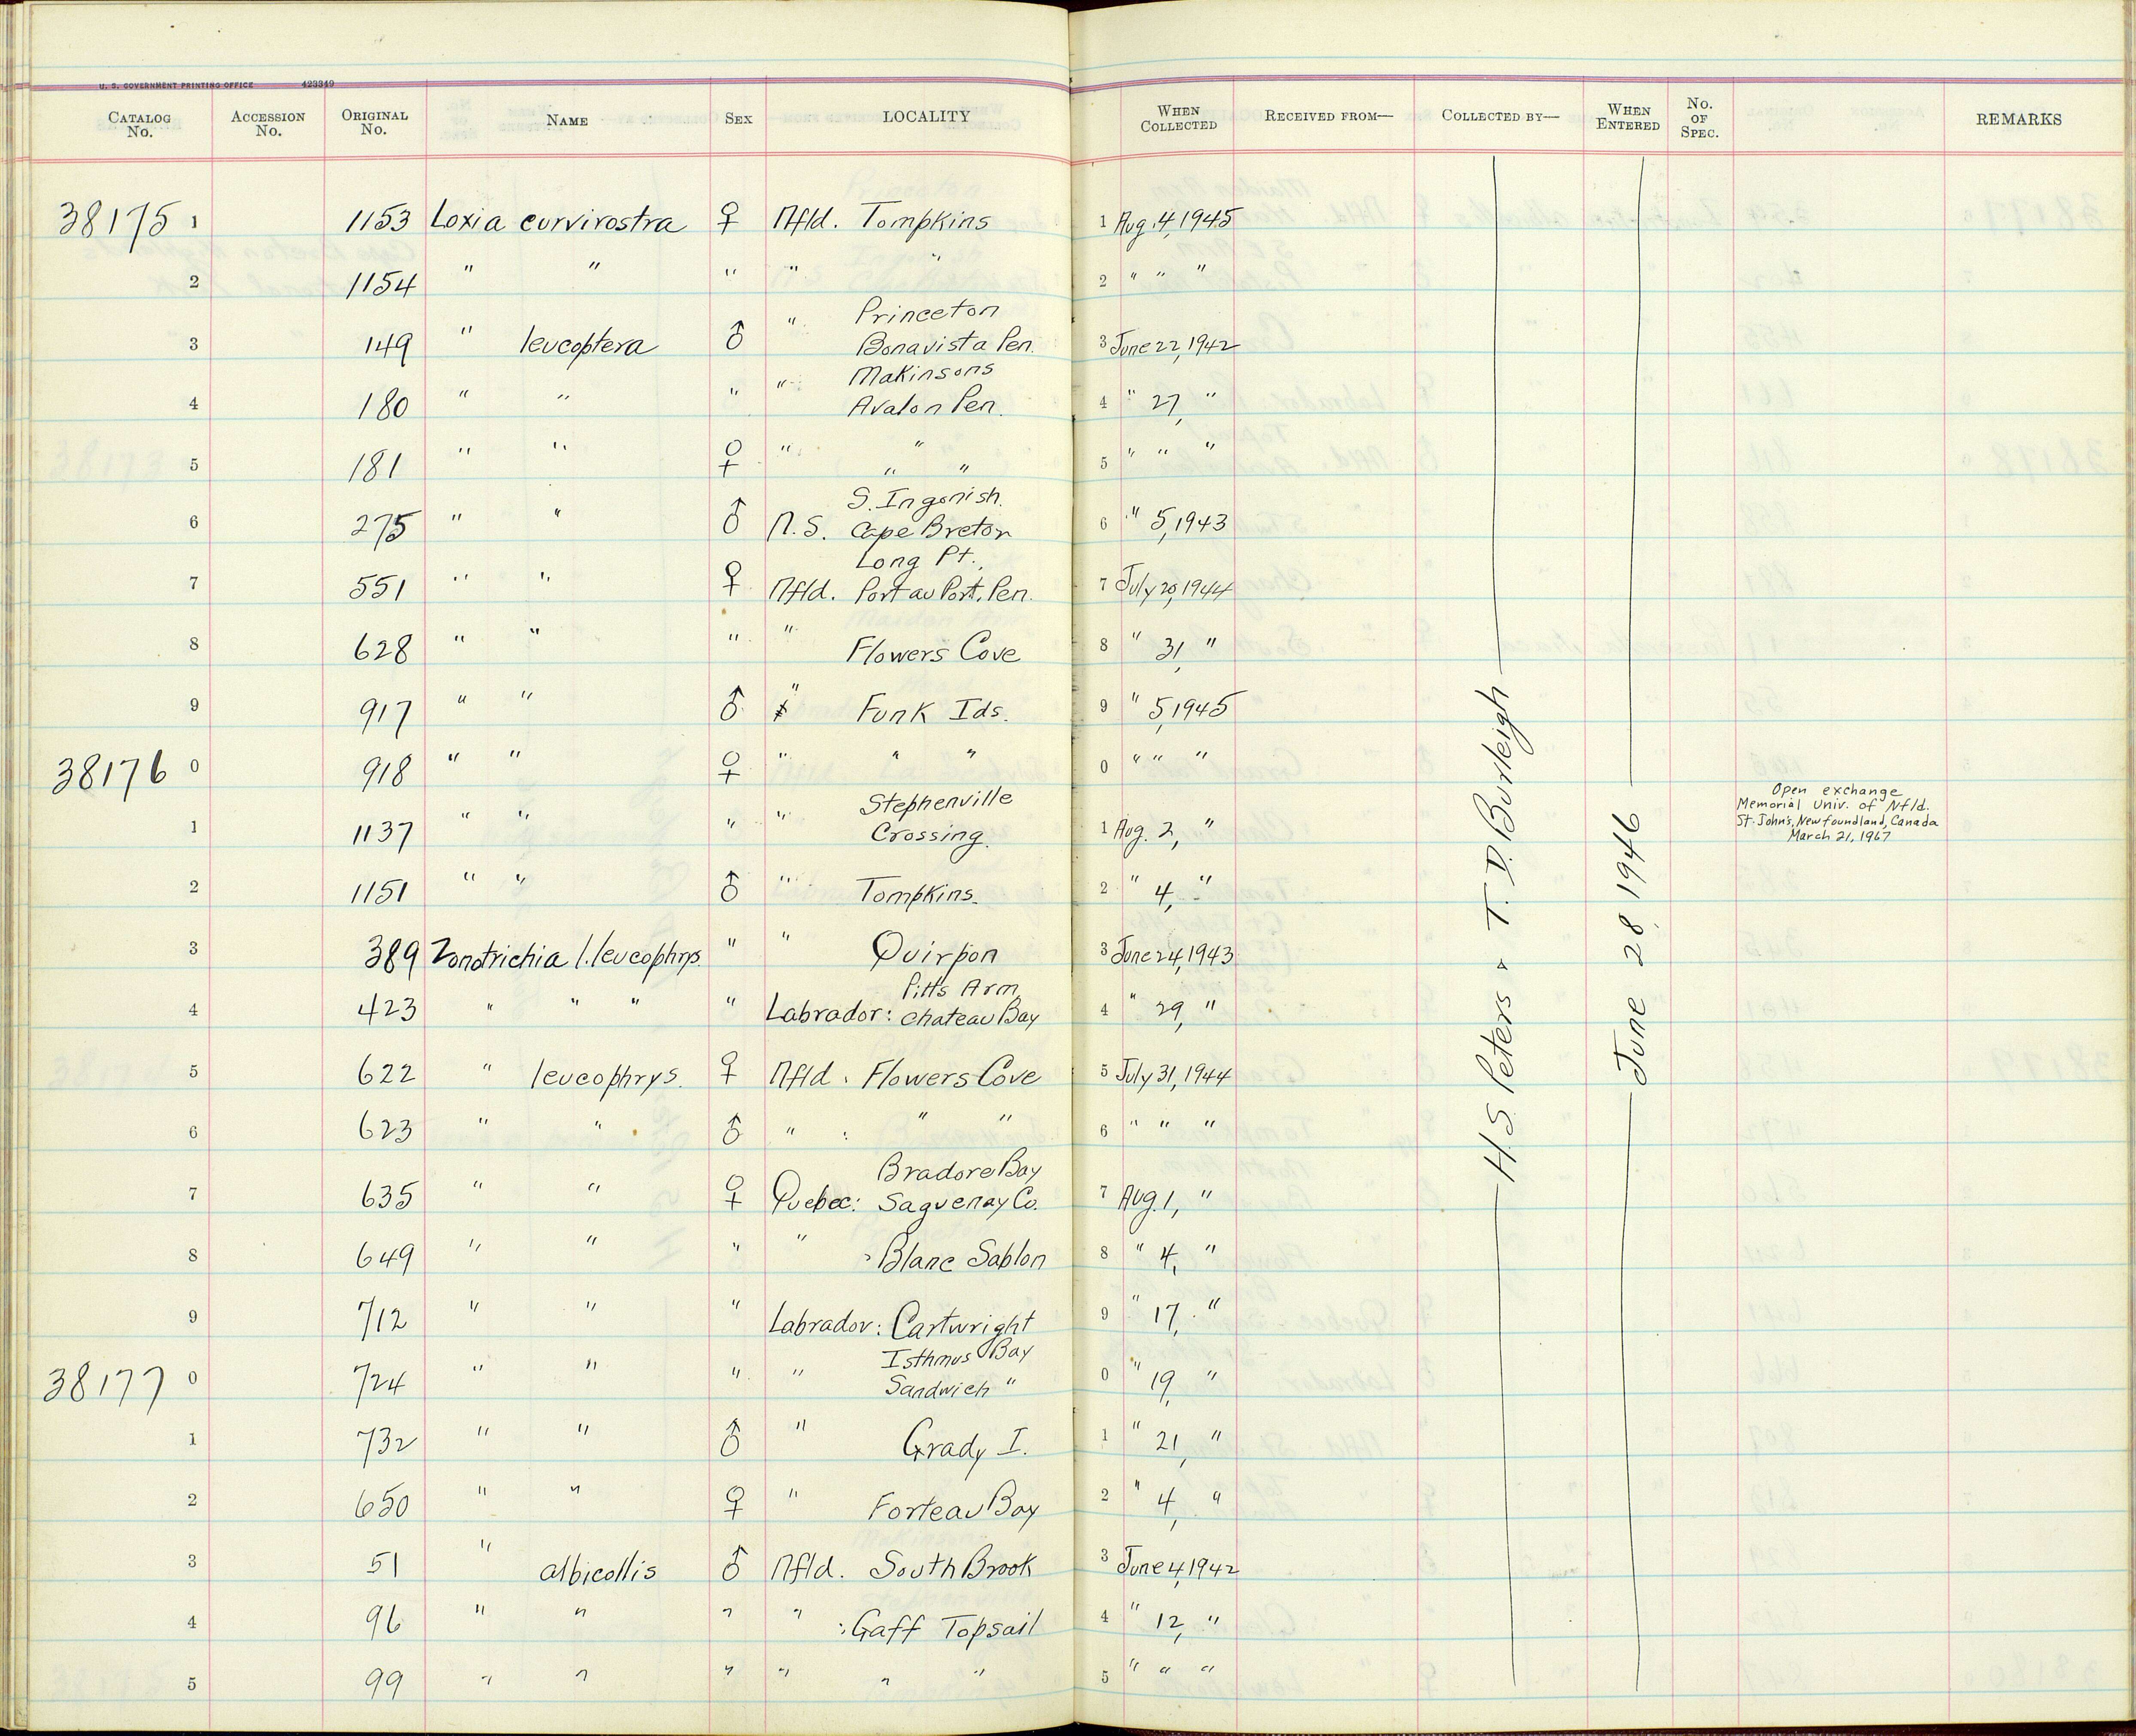 U. S. GOVERNMENT PRINTING OFFICE 423349
CATALOG No. ACCESSION No. ORIGINAL No. NAME SEX LOCALITY WHEN COLLECTED RECEIVED FROM— COLLECTED BY— WHEN ENTERED No. OF SPEC. REMARKS
38175 1 1153 Loxia curvirostra ♀ Nfld. Tompkins 1 Aug. 4, 1945
2 1154 " " " " " 2 " " "
Princeton
3 149 " leucoptera ♂ " Bonavista Pen. 3 June 22, 1942
Makinsons
4 180 " " " " Avalon Pen. 4 " 27, "
5 181 " " ♀ " " 5 " " "
" "
S. Ingonish.
6 275 " " ♂ N.S. Cape Breton 6 " 5, 1943
Long Pt.,
7 551 " " ♀ Nfld. Port au Port. Pen. 7 July 20, 1944
8 628 " " " " Flowers Cove 8 " 31, "
9 917 " " ♂ " Funk Ids. 9 " 5, 1945
38176 0 918 " " ♀ " " " 0 " " "
Stephenville
1 1137 " " " " Crossing. 1 Aug. 2, "
Open exchange
Memorial Univ. of Nfld.
St. John's, Newfoundland, Canada
March 21, 1967
2 1151 " " ♂ " Tompkins. 2 " 4, "
3 389 Zonotrichia l. leucophrys. " " Quirpon 3 June 24, 1943
Pitts Arm
4 423 " " " " Labrador: Chateau Bay 4 " 29, "
5 622 " leucophrys. ♀ Nfld. Flowers Cove 5 July 31, 1944
6 623 " " ♂ " : " " 6 " " "
Bradore Bay
7 635 " " ♀ Quebec: Saguenay Co. 7 Aug. 1, "
8 649 " " " " : Blanc Sablon 8 " 4, "
9 712 " " " Labrador: Cartwright 9 " 17, "
Isthmus Bay
38177 0 724 " " " " Sandwich " 0 " 19, "
1 732 " " ♂ " Grady I. 1 " 21, "
2 650 " " ♀ " Forteau Bay 2 " 4, "
3 51 " albicollis ♂ Nfld. South Brook 3 June 4, 1942
4 96 " " " " : Gaff Topsail 4 " 12, "
5 99 " " " " " " 5 " " "
H.S. Peters & T. D. Burleigh
June 28 1946